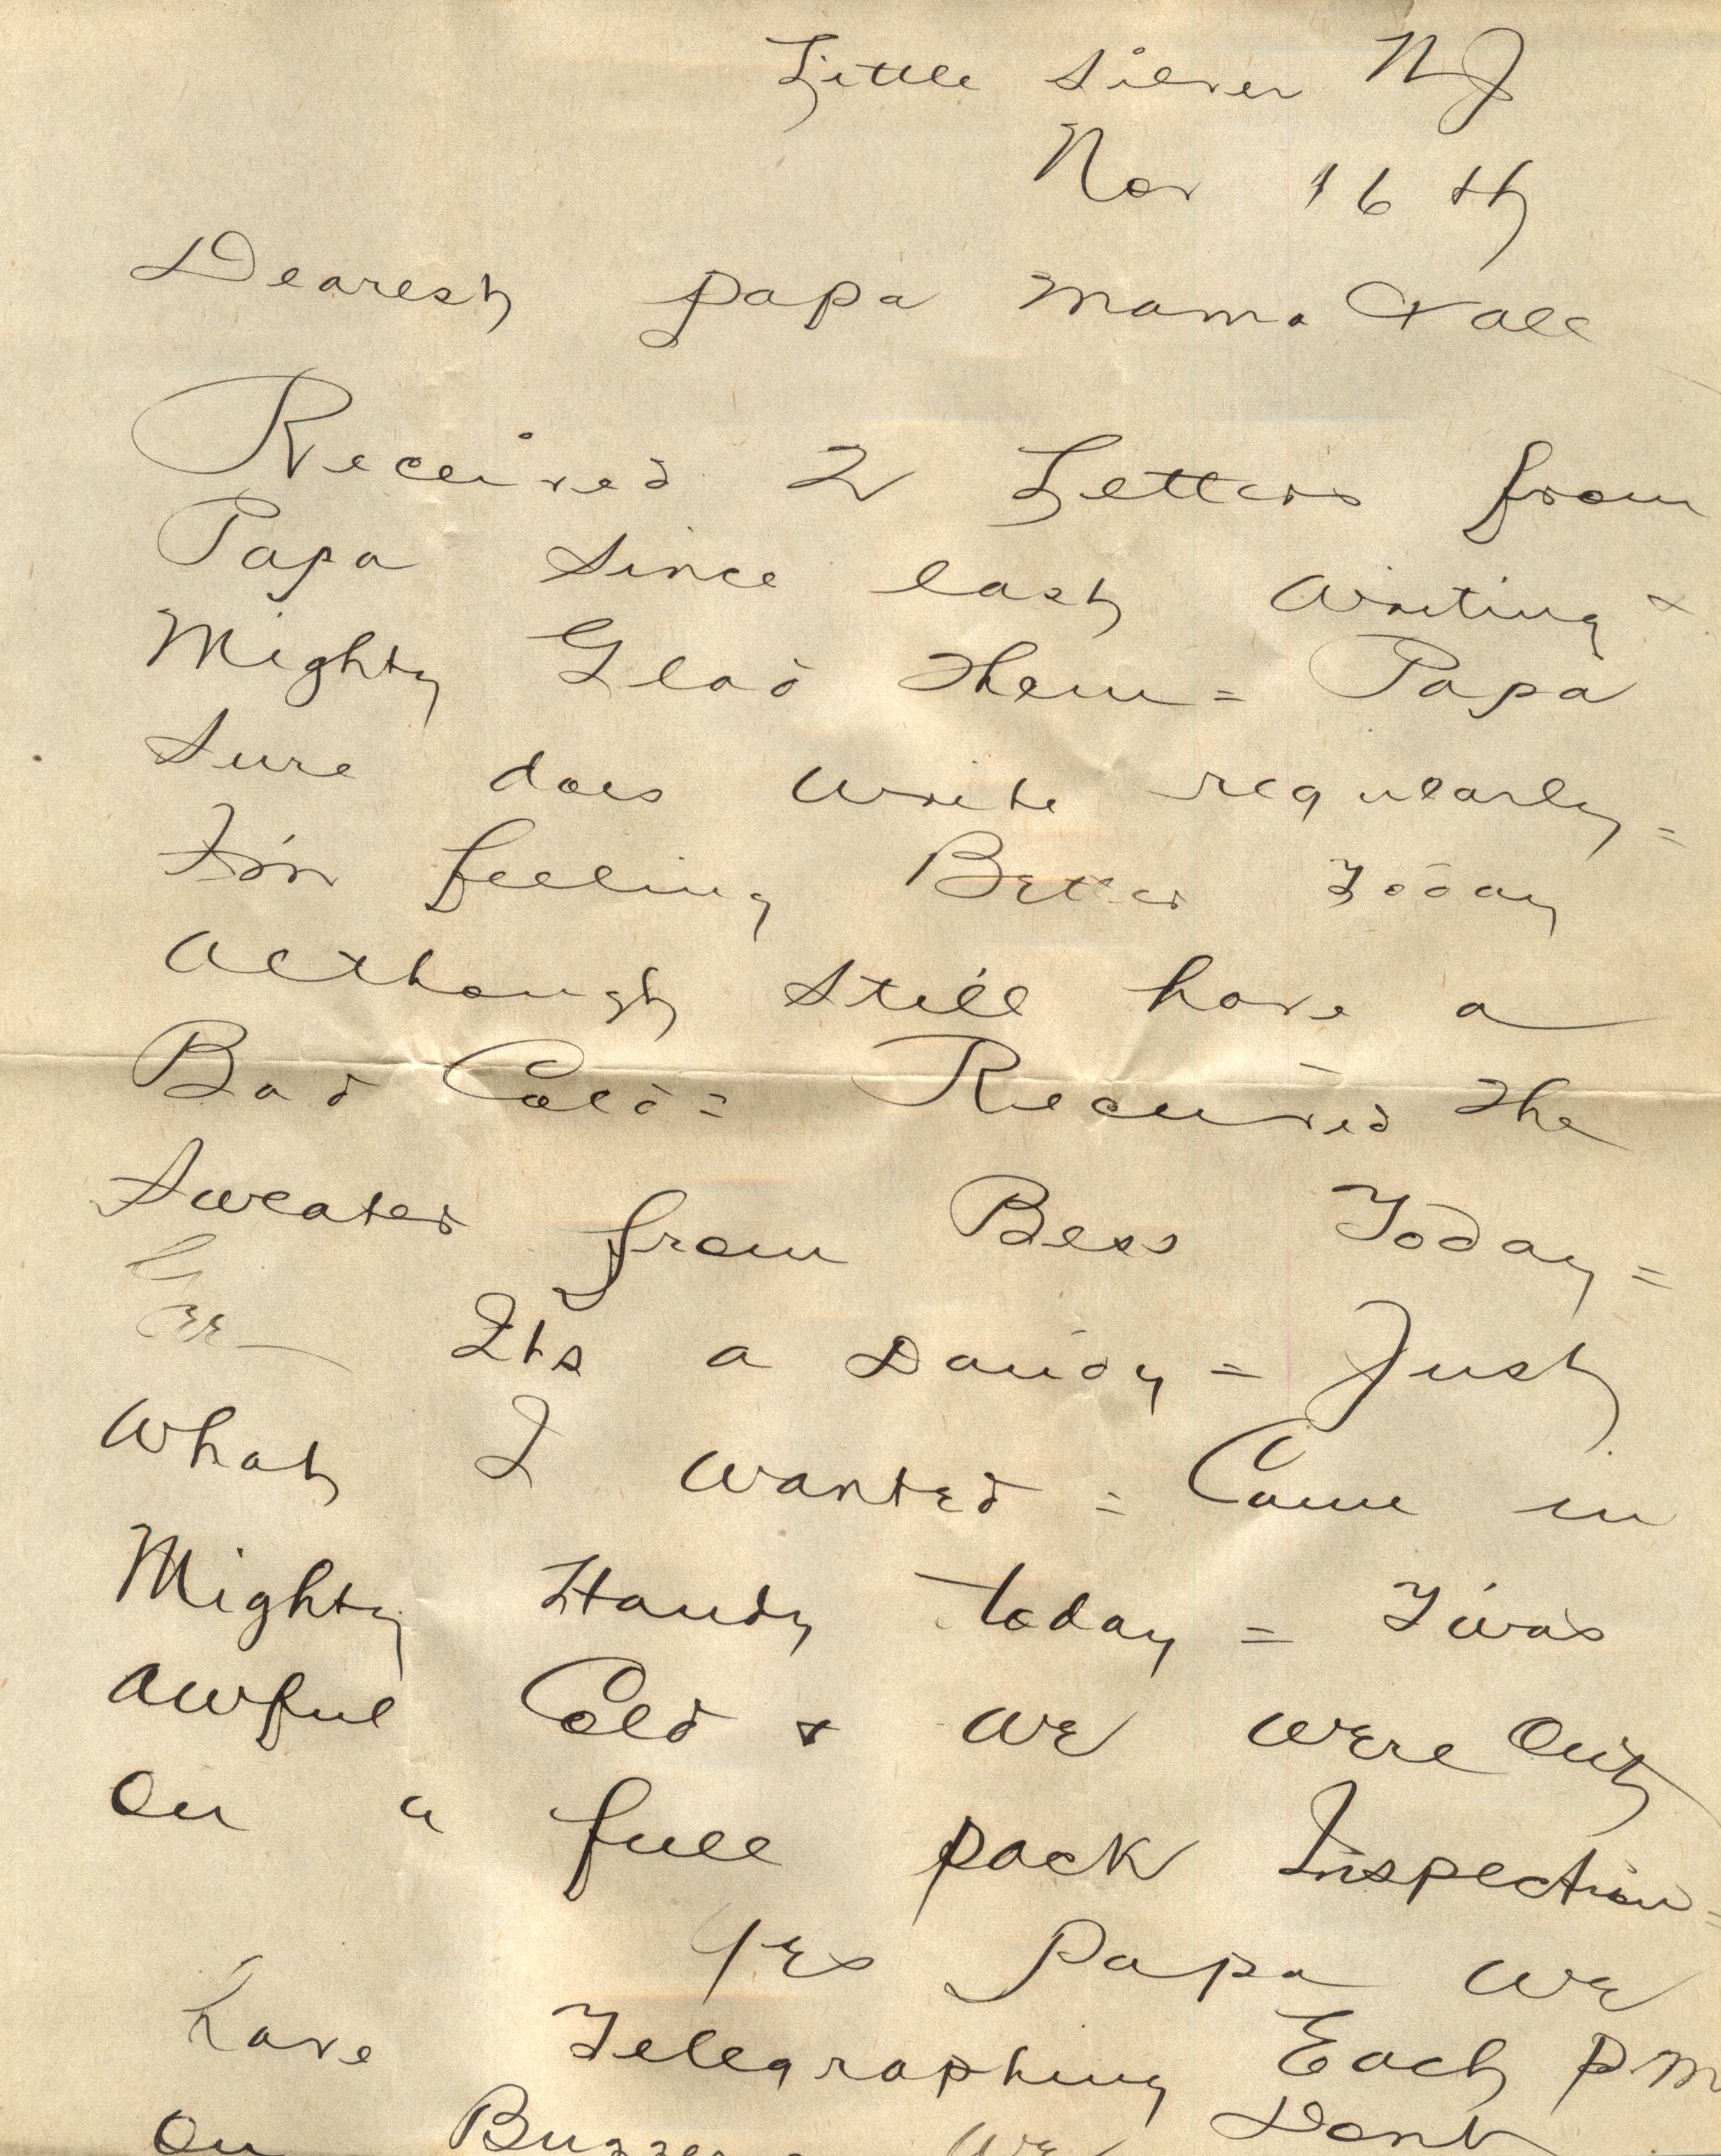 Little Silver NJ
Nov 16th
Dearest papa mama & all
Received 2 Letters from
Papa Since last writing &
Mighty Glad them = Papa
Sure does write regularly =
I'm feeling Better Today
although still have a
Bad Cold = Received the
Sweater from Bess Today =
Gee Its a Dandy = Just
what I wanted = Came in
Mighty Handy today = Twas
awful Cold & we were out
on a full pack Inspection =
Yes Papa we
have Telegraphing Each PM
on Buzzer = We Dont